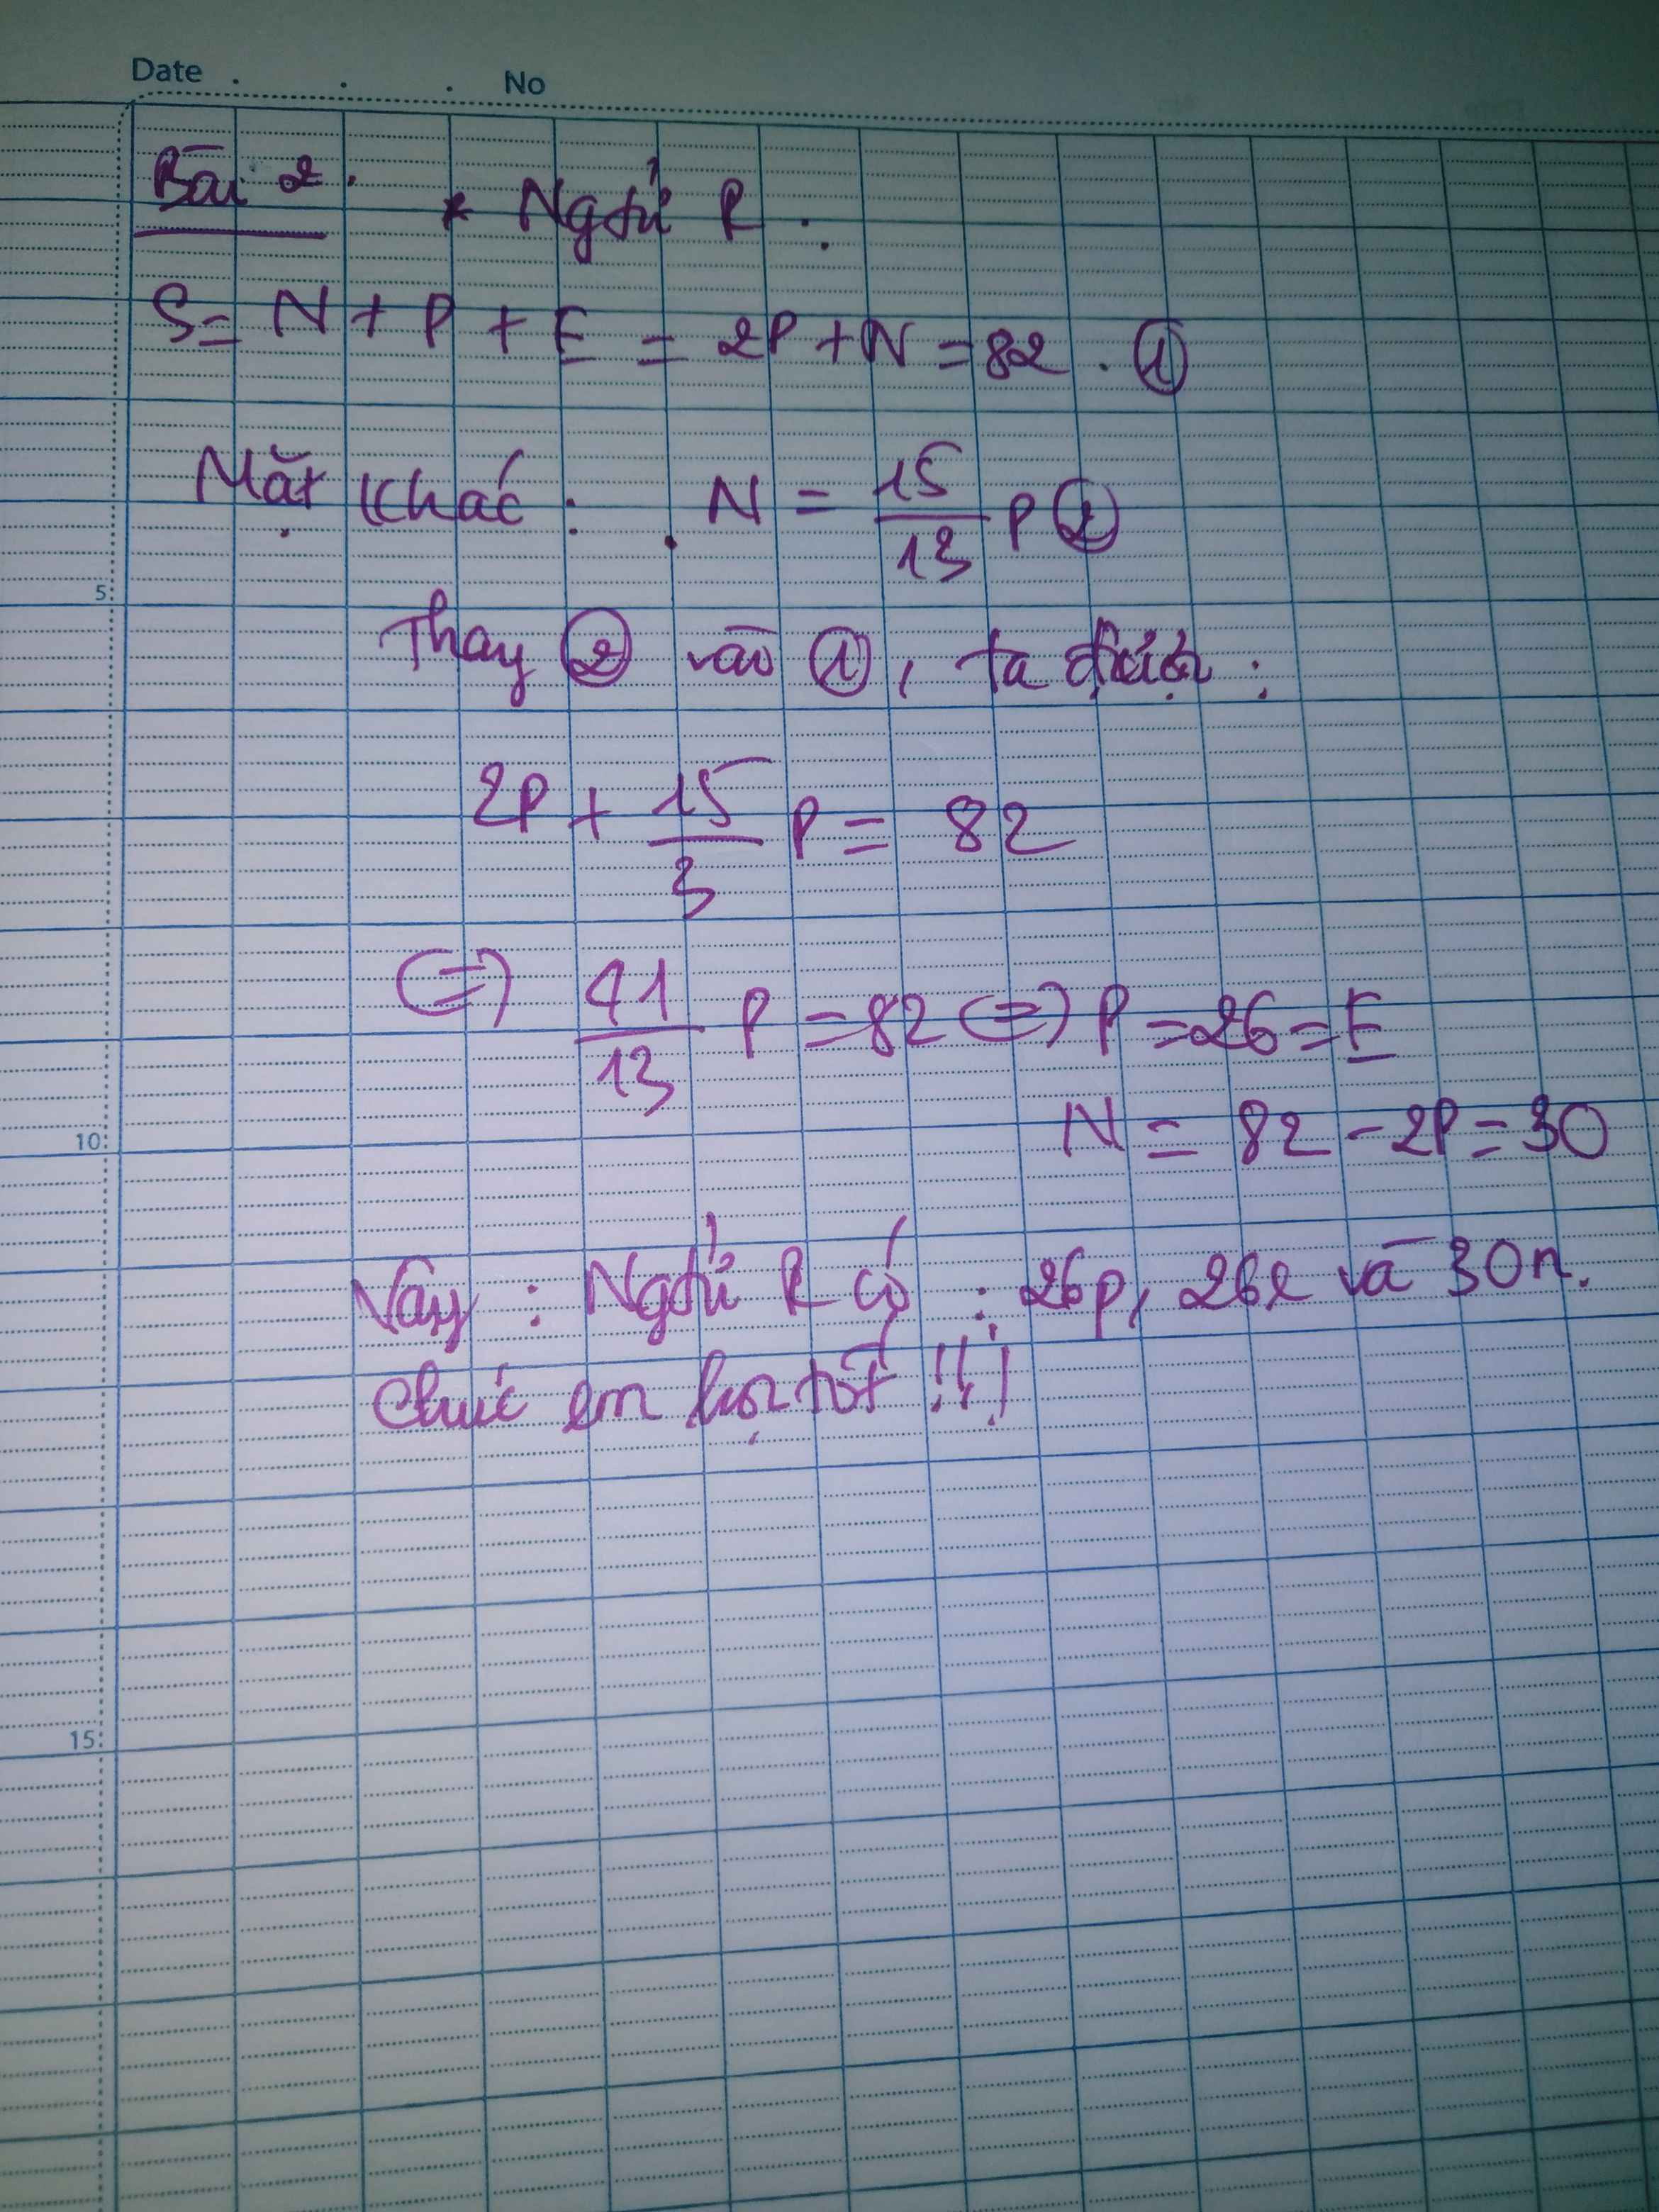 Date . . . No
Bài 2. * Ngtử R :
S = N + P + E = 2P + N = 82 . ①
Mặt khác : N = 15/13 P ②
Thay ② vào ①, ta được :
2P + 15/3 P = 82
(=) 41/13 P = 82 (=) P = 26 = E
N = 82 - 2P = 30
Vậy : Ngtử R có : 26p, 26e và 30n.
Chúc em học tốt !!!
5
10
15